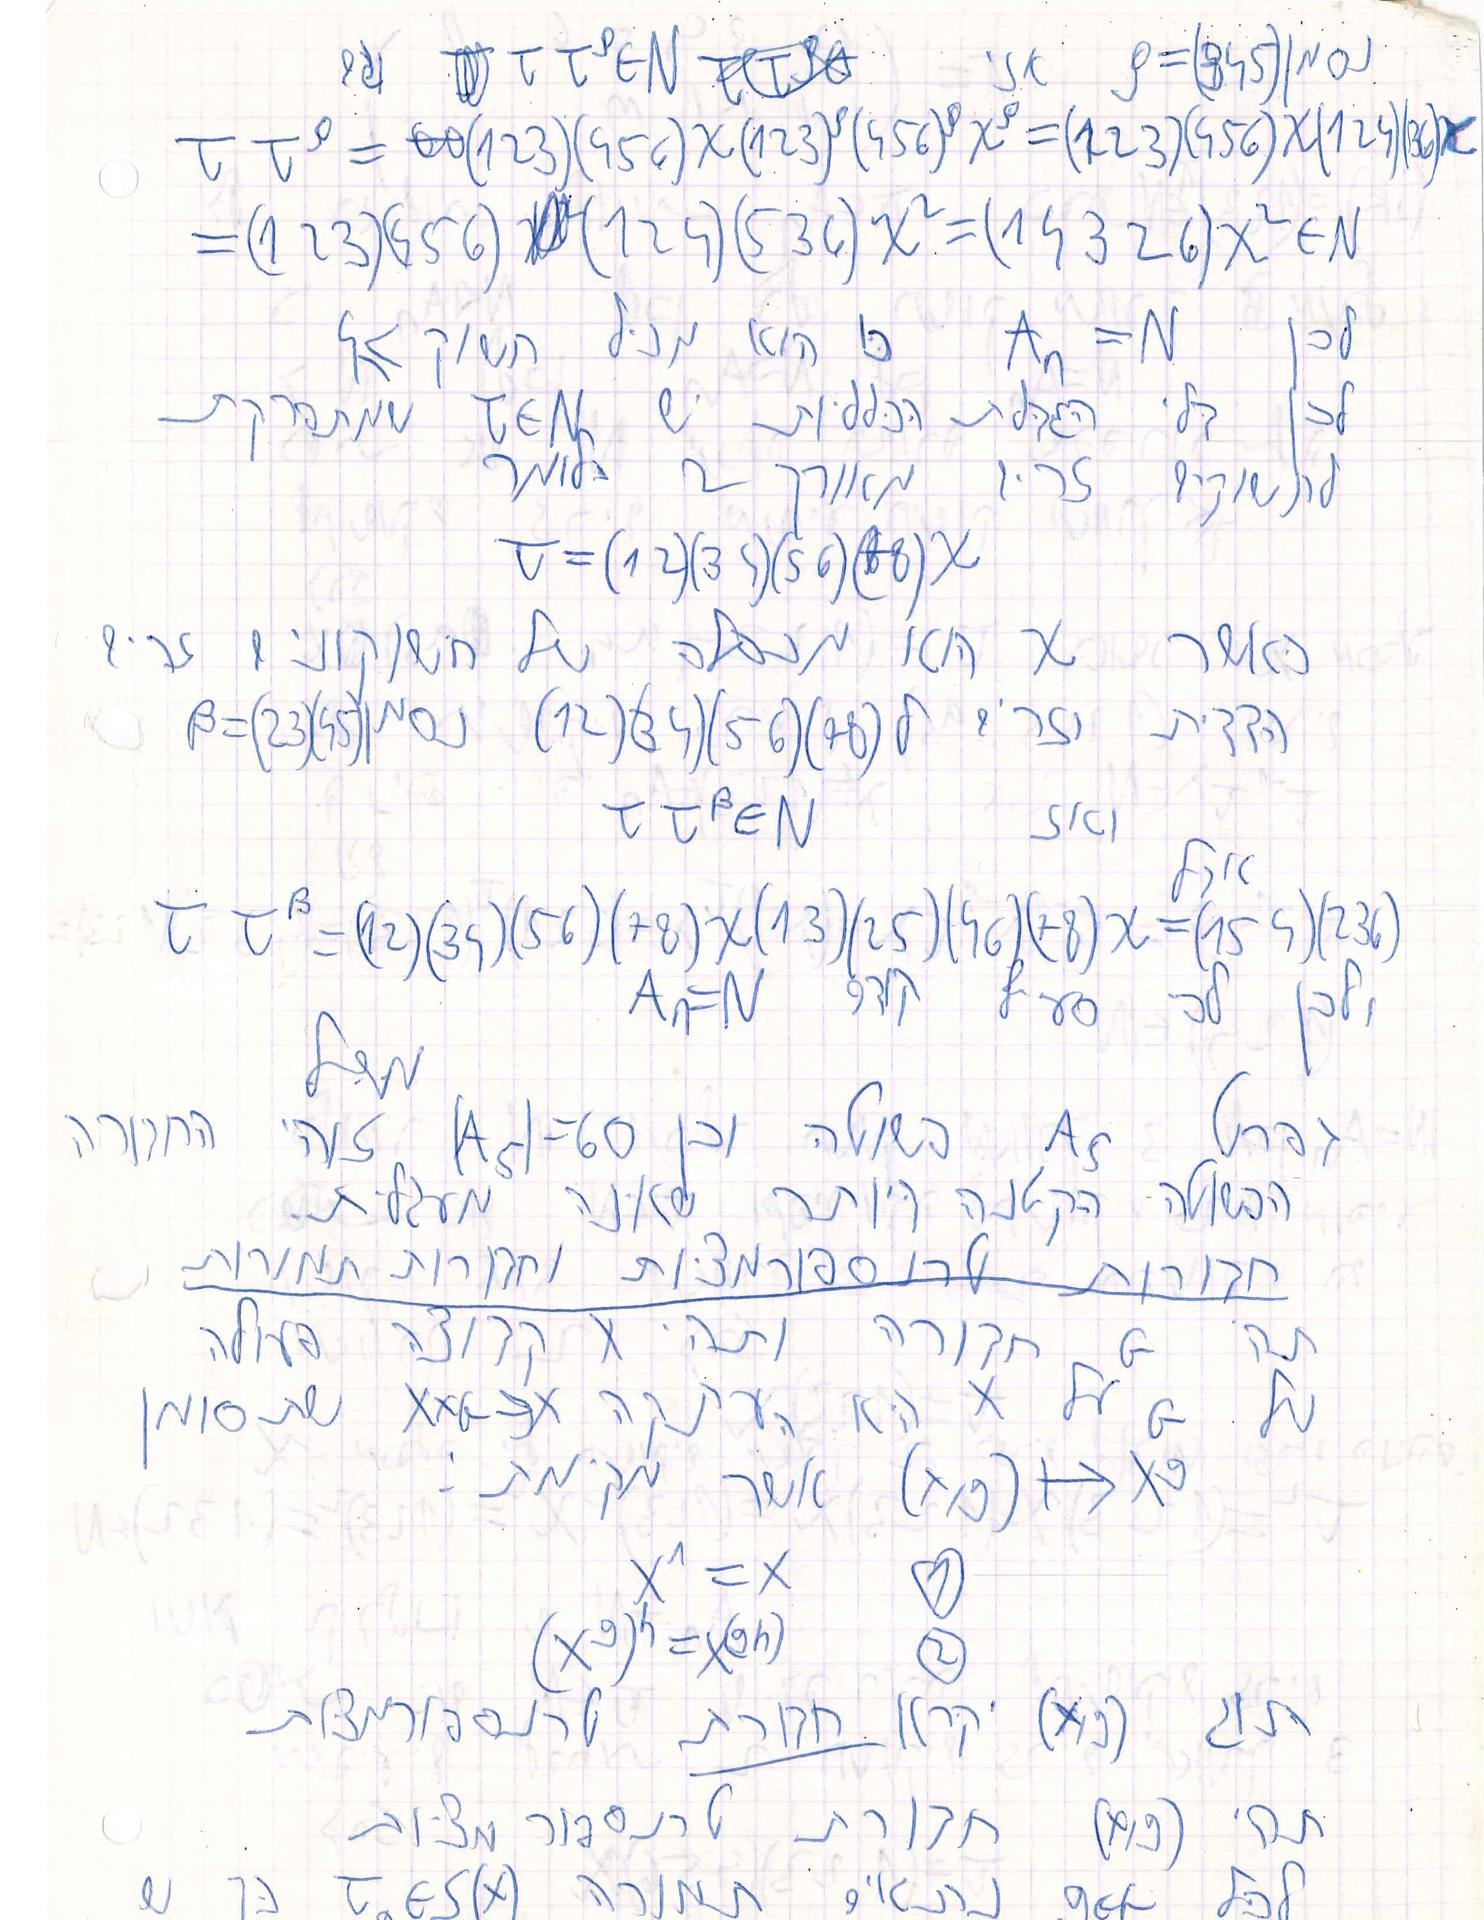 נסמן ρ=(345) אזי τ τ^ρ∈N וגם
τ τ^ρ = (123)(456)χ(123)^ρ(456)^ρ χ^ρ=(123)(456)χ(124)(536)χ
=(123)(456)(124)(536)χ²=(14326)χ²∈N
לכן A_n =N כי הוא מכיל חישוק >4
לכן בלי הגבלת הכלליות יש τ∈N שמתפרקת
לחישוקים זרים מאורך 2 כלומר
τ=(12)(34)(56)(78)χ
כאשר χ הוא מכפלה של חישוקונים זרים
הדדית וזרים ל (12)(34)(56)(78) נסמן β=(23)(45)
ואז τ τ^β∈N
אבל
τ τ^β=(12)(34)(56)(78)χ(13)(25)(46)(78)χ=(154)(236)
ולכן לפי סעיף קודם A_n=N
משל
בפרט A_5 פשוטה וכן |A_5|=60 זוהי החבורה
הפשוטה הקטנה ביותר שאינה מעגלית.
חבורות טרנספורמציות וחבורות תמורות
תהי G חבורה ותהי X קבוצה פעולה
של G על X היא העתקה X×G→X שתסומן
(x,g)↦x^g אשר מקיימת:
① x^1=x
② (x^g)^h=x^(gh)
הזוג (G,X) יקרא חבורת טרנספורמציות
תהי (G,X) חבורת טרנספורמציות
לכל g∈G נתאים תמורה τ_g∈S(X) כך ש